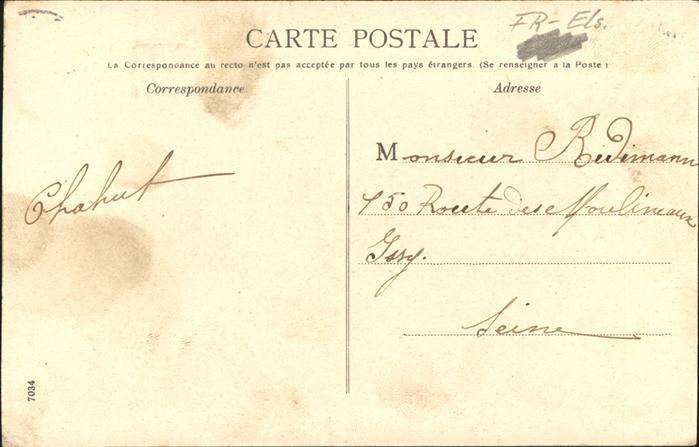 FR-Els.
CARTE POSTALE
La Correspondance au recto n'est pas acceptée par tous les pays étrangers. (Se renseigner à la Poste)
Correspondance
Adresse
Chahut
Monsieur Redimann
150 Route des Moulineaux
Issy.
Seine
7034